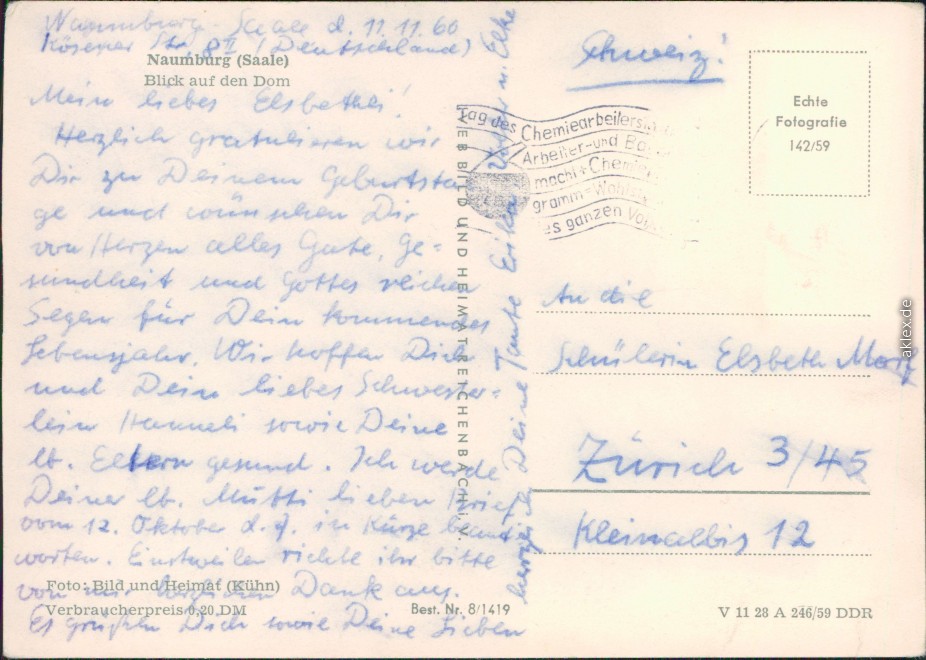 Naumburg - Saale d. 11.11.60
Kösener Str. 8 II (Deutschland)
Naumburg (Saale)
Blick auf den Dom
Mein liebes Elsbethli!
Herzlich gratulieren wir
Dir zu Deinem Geburtsta
ge und wünschen Dir
von Herzen alles Gute, Ge=
sundheit und Gottes reichen
Segen für Dein kommendes
Lebensjahr. Wir hoffen Dich
und Dein liebes Schwester=
lein Hanneli sowie Deine
lb. Eltern gesund. Ich werde
Deiner lb. Mutti lieben Brief
vom 12. Oktober d. J. in Kürze beant
worten. Einstweilen richte ihr bitte
von mir herzlichen Dank aus.
Es grüßen Dich sowie Deine Lieben
herzlich Deine Tante Erika u. Elke
Foto: Bild und Heimat (Kühn)
Verbraucherpreis 0,20 DM
Best. Nr. 8/1419
VEB BILD UND HEIMAT REICHENBACH i. V.
Tag des Chemiearbeiters
Arbeiter-und Ba
macht + Chemie
gramm = Wohlst
des ganzen Vol
Schweiz!
Echte
Fotografie
142/59
An die
Schülerin Elsbeth
Zürich 3/45
Kleinalbis 12
V 11 28 A 246/59 DDR
aklex.de